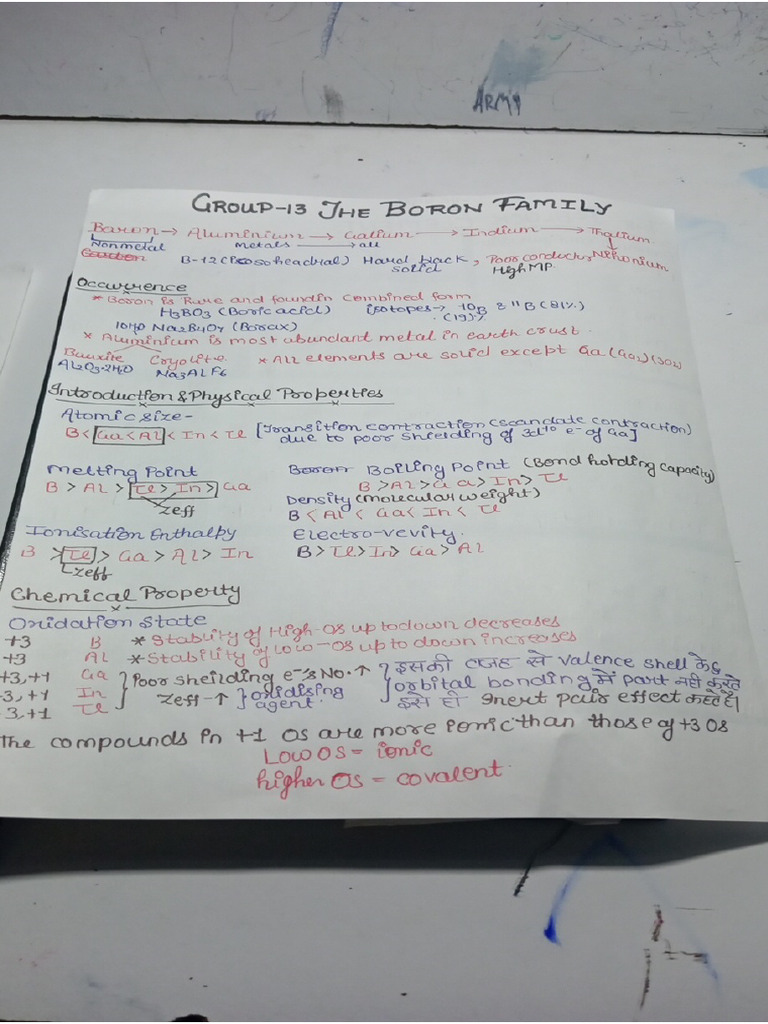 ARMY
GROUP-13 THE BORON FAMILY
Baron → Aluminium → Gallium → Indium → Thallium
Nonmetal metals → all Nihonium
B-12 (Icosoheadral) Hard black solid, Poor conductor, High MP.
Occurrence
* Boron is Rare and found in Combined form
H3BO3 (Boric acid) isotopes → 10B (19)% & 11B (81%)
10H2O Na2B4O7 (Borax)
* Aluminium is most abundant metal in earth crust.
Bauxite Cryolite * All elements are solid except Ga
Al2O3·2H2O Na3AlF6
Introduction & Physical Properties
Atomic size-
B < Ga < Al < In < Tl [Transition contraction (scandate contraction)
due to poor shielding of 3d10 e- of Ga]
Melting Point
B > Al > Tl > In > Ga
Zeff
Boron Boiling Point (Bond holding capacity)
B > Al > Ga > In > Tl
Density (molecular weight)
B < Al < Ga < In < Tl
Ionisation Enthalpy
B > Tl > Ga > Al > In
Zeff
Electro-vevity.
B > Tl > In > Ga > Al
Chemical Property
Oxidation State
+3 B * Stability of High-OS up to down decreases
+3 Al * Stability of Low-OS up to down increases
+3,+1 Ga Poor sheilding e-'s No. ↑ इसकी वजह से valence shell के
3,+1 In Zeff-↑ oxidising agent. orbital bonding में part नही करते
3,+1 Tl इसे ही Inert pair effect कहते है।
The compounds in +1 OS are more ionic than those of +3 OS
Low OS = ionic
higher OS = covalent.